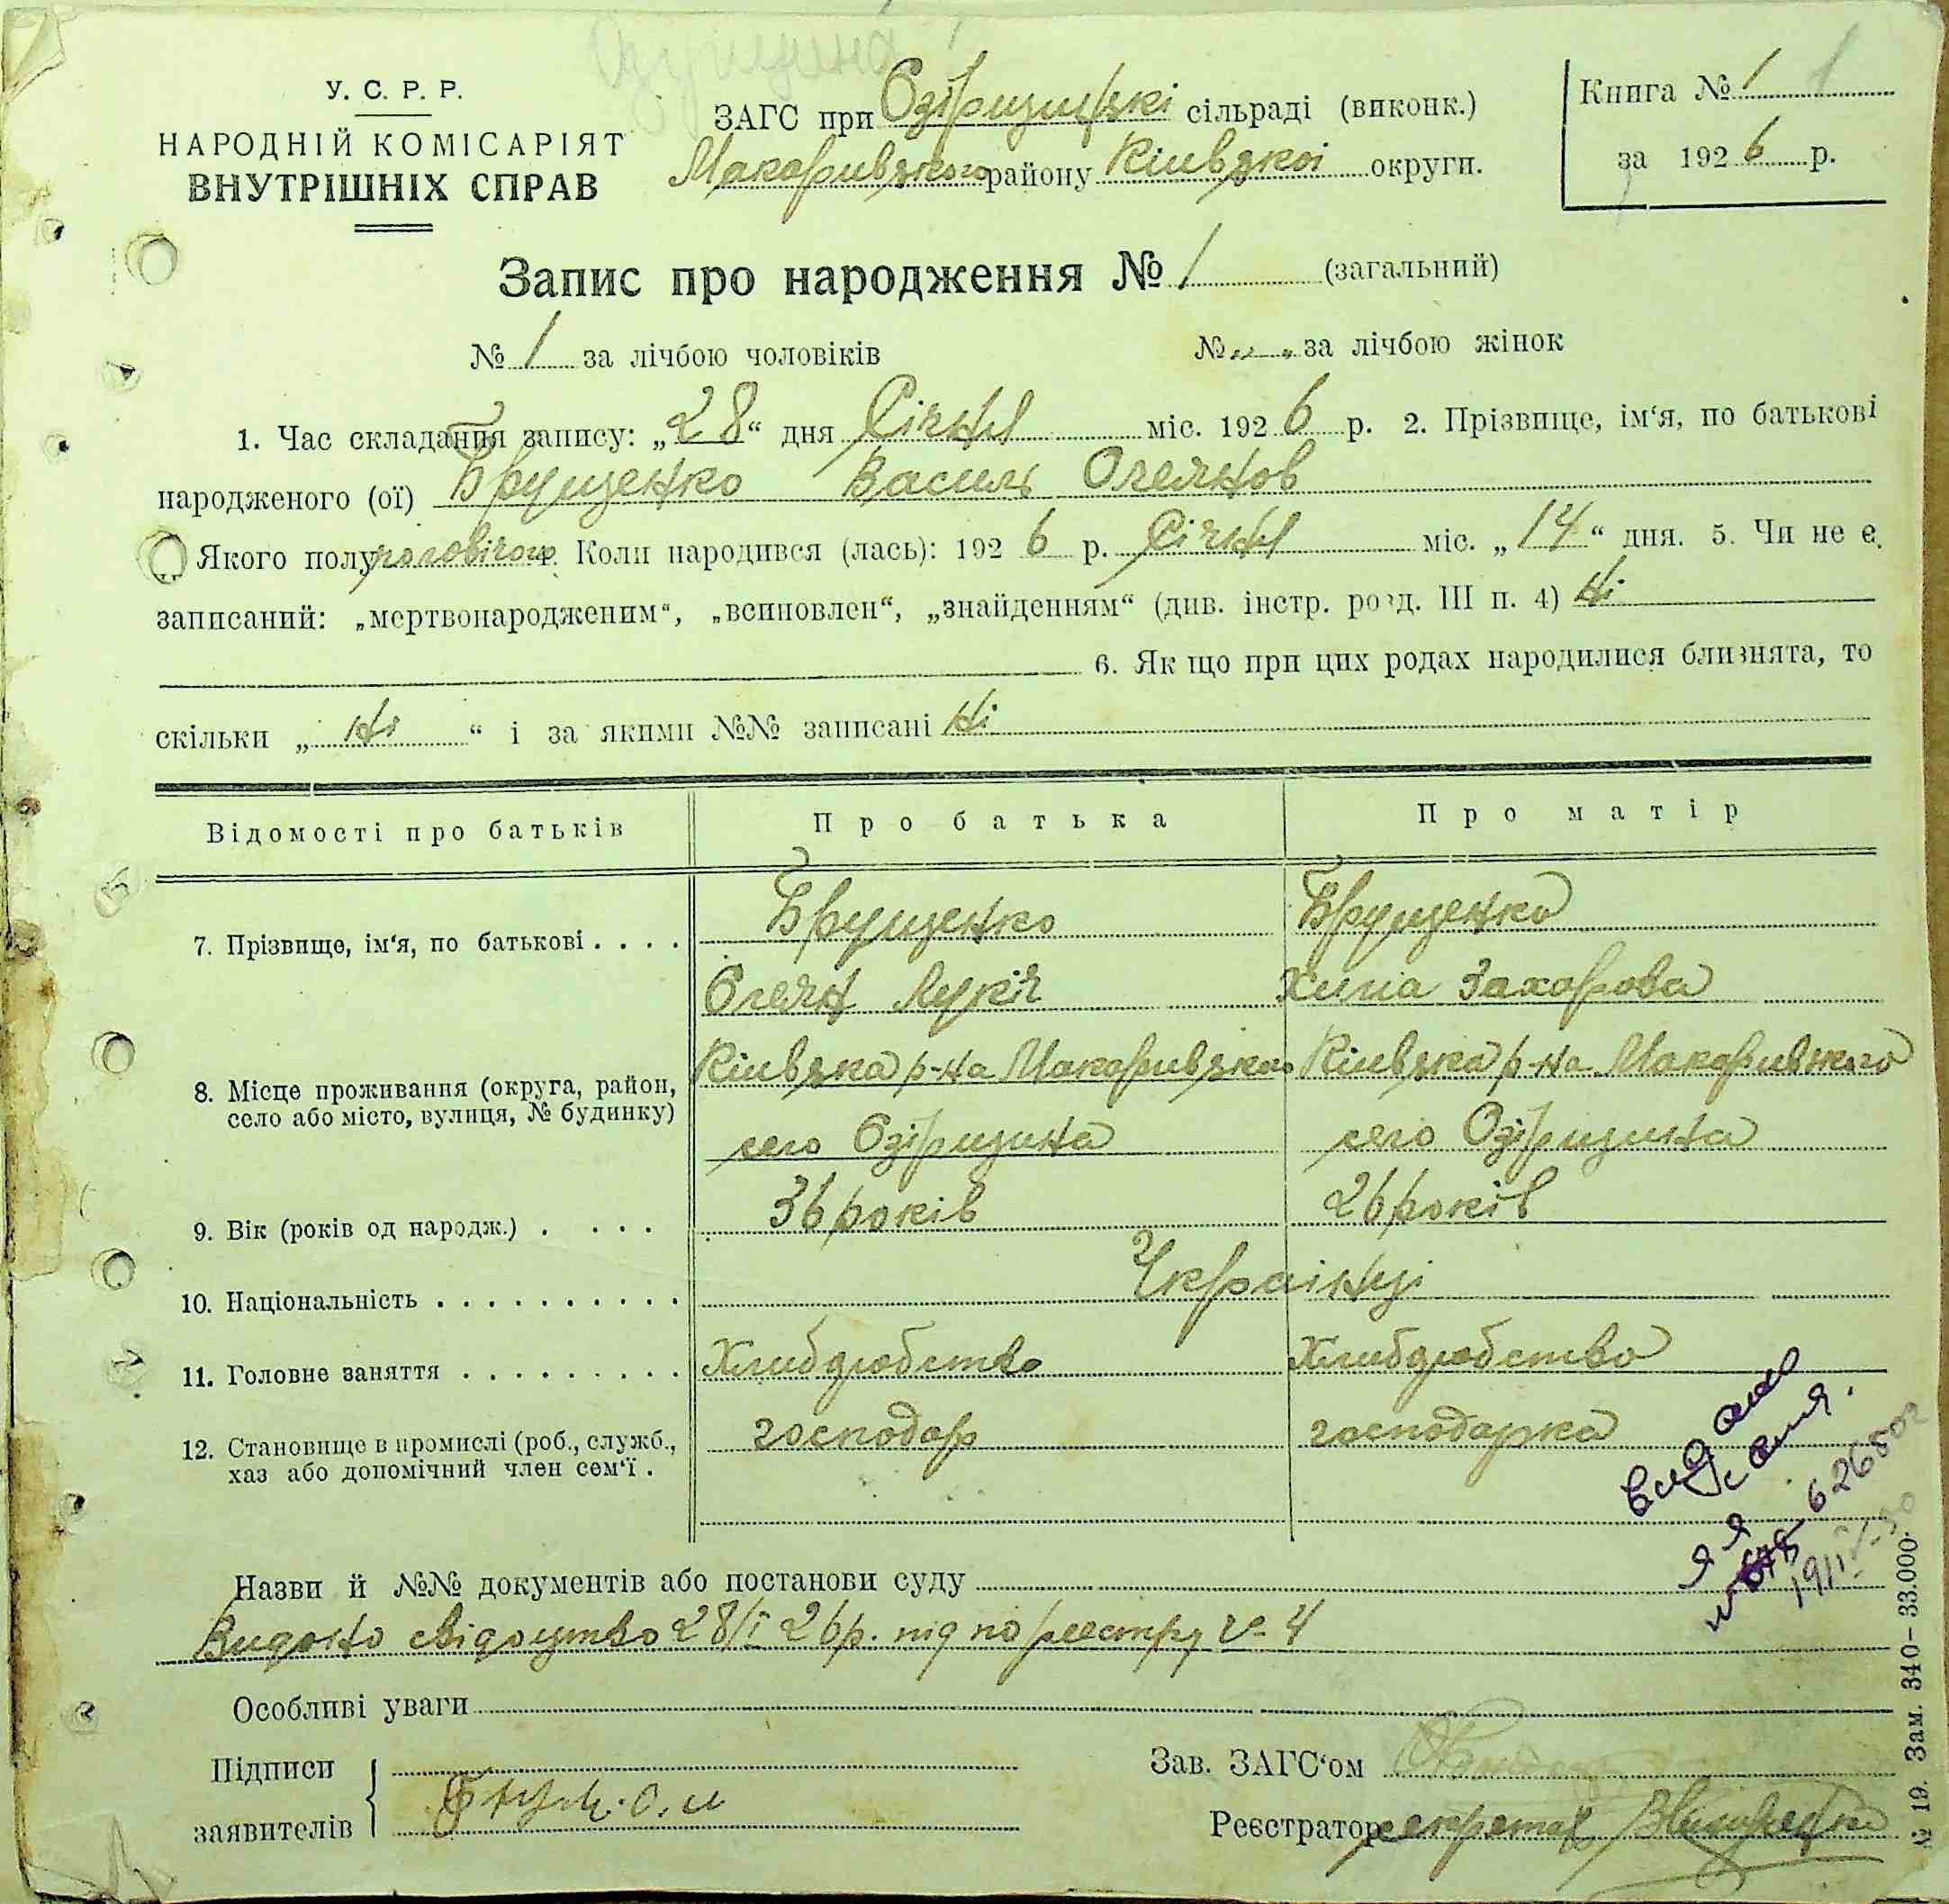 У. С. Р. Р.
НАРОДНІЙ КОМІСАРІЯТ
ВНУТРІШНІХ СПРАВ
ЗАГС при Озірщицькі сільраді (виконк.)
Макаривзкого району Кіивзкої округи.
Книга № 1
за 1926 р.
Запис про народження № 1 (загальний)
№ 1 за лічбою чоловіків № „ „ за лічбою жінок
1. Час складання запису: „28“ дня Січня міс. 1926 р. 2. Прізвище, ім‘я, по батькові
народженого (ої) Брущенко Василь Олелянов
Якого полу чоловічого 4. Коли народився (лась): 1926 р. Січня міс. „14“ дня. 5. Чи не є
записаний: „мертвонародженим“, „всиновлен“, „знайденням“ (див. інстр. розд. III п. 4) Ні
6. Як що при цих родах народилися близнята, то
скільки „ Ні “ і за якими №№ записані Ні
Відомості про батьків Про батька Про матір
7. Прізвище, ім‘я, по батькові . . . . Брущенко Брущенко
Лукіч Захорова
8. Місце проживання (округа, район, село або місто, вулиця, № будинку) Кіивзка р-на Макаривзкого Кіивзка р-на Макаривзкого
село Озірщина село Озірщина
9. Вік (років од народж.) . . . . 36 років 26 років
10. Національність . . . . . . . . . . Украінці
11. Головне заняття . . . . . . . . . Хлибдробство Хлибдробство
12. Становище в промислі (роб., служб., хаз або допомічний член сем‘ї . господар господарка
Назви й №№ документів або постанови суду
Видано свідоцтво 28/I 26 р. під по реестру № 4
Особливі уваги
Підписи
заявителів
Зав. ЗАГС‘ом
Реєстратор секретар
№ 19. Зам. 340–33.000.